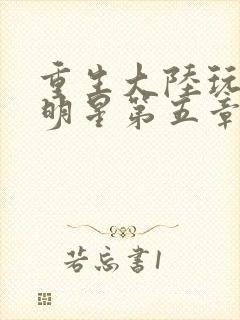 重生大陸玩
明星第五章
若忘書1